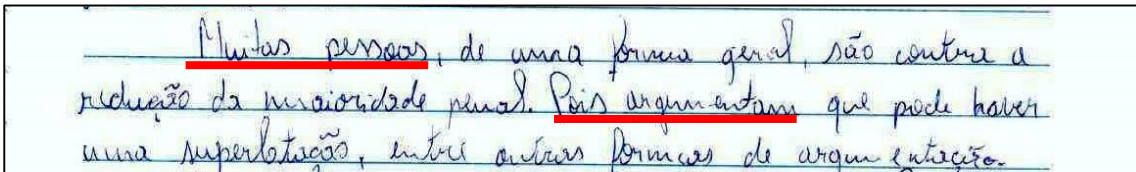 Muitas pessoas, de uma forma geral, são contra a
redução da maioridade penal. Pois argumentam que pode haver
uma superlotação, entre outras formas de argumentação.